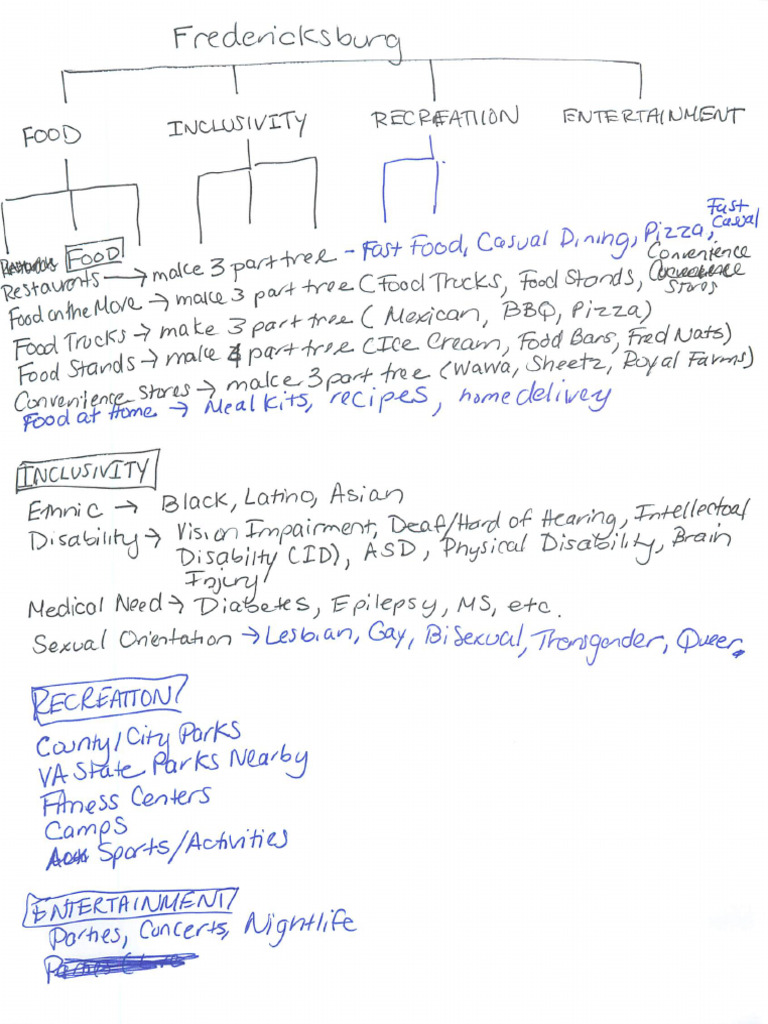 Fredericksburg
FOOD INCLUSIVITY RECREATIION ENTERTAINMENT
FOOD
Restaurants → make 3 part tree - Fast Food, Casual Dining, Pizza, Fast Casual
Food on the Move → make 3 part tree (Food Trucks, Food Stands, Convenience Stores
Food Trucks → make 3 part tree (Mexican, BBQ, Pizza)
Food Stands → make 4 part tree (Ice Cream, Food Bars, Fred Nats)
Convenience Stores → make 3 part tree (Wawa, Sheetz, Royal Farms)
Food at Home → Meal kits, recipes, home delivery
INCLUSIVITY
Ethnic → Black, Latino, Asian
Disability → Vision Impairment, Deaf/Hard of Hearing, Intellectual
Disabilty (ID), ASD, Physical Disability, Brain
Injury
Medical Need → Diabetes, Epilepsy, MS, etc.
Sexual Orientation → Lesbian, Gay, BiSexual, Transgender, Queer.
RECREATION
County/City Parks
VA State Parks Nearby
Fitness Centers
Camps
Sports/Activities
ENTERTAINMENT
Parties, Concerts, Nightlife